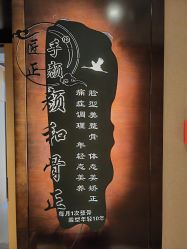 匠正
孚颜
颜和骨正
脸型美整骨 体态美矫正
痛症调理 年轻态美养
每月1次整骨
脸型年轻10年